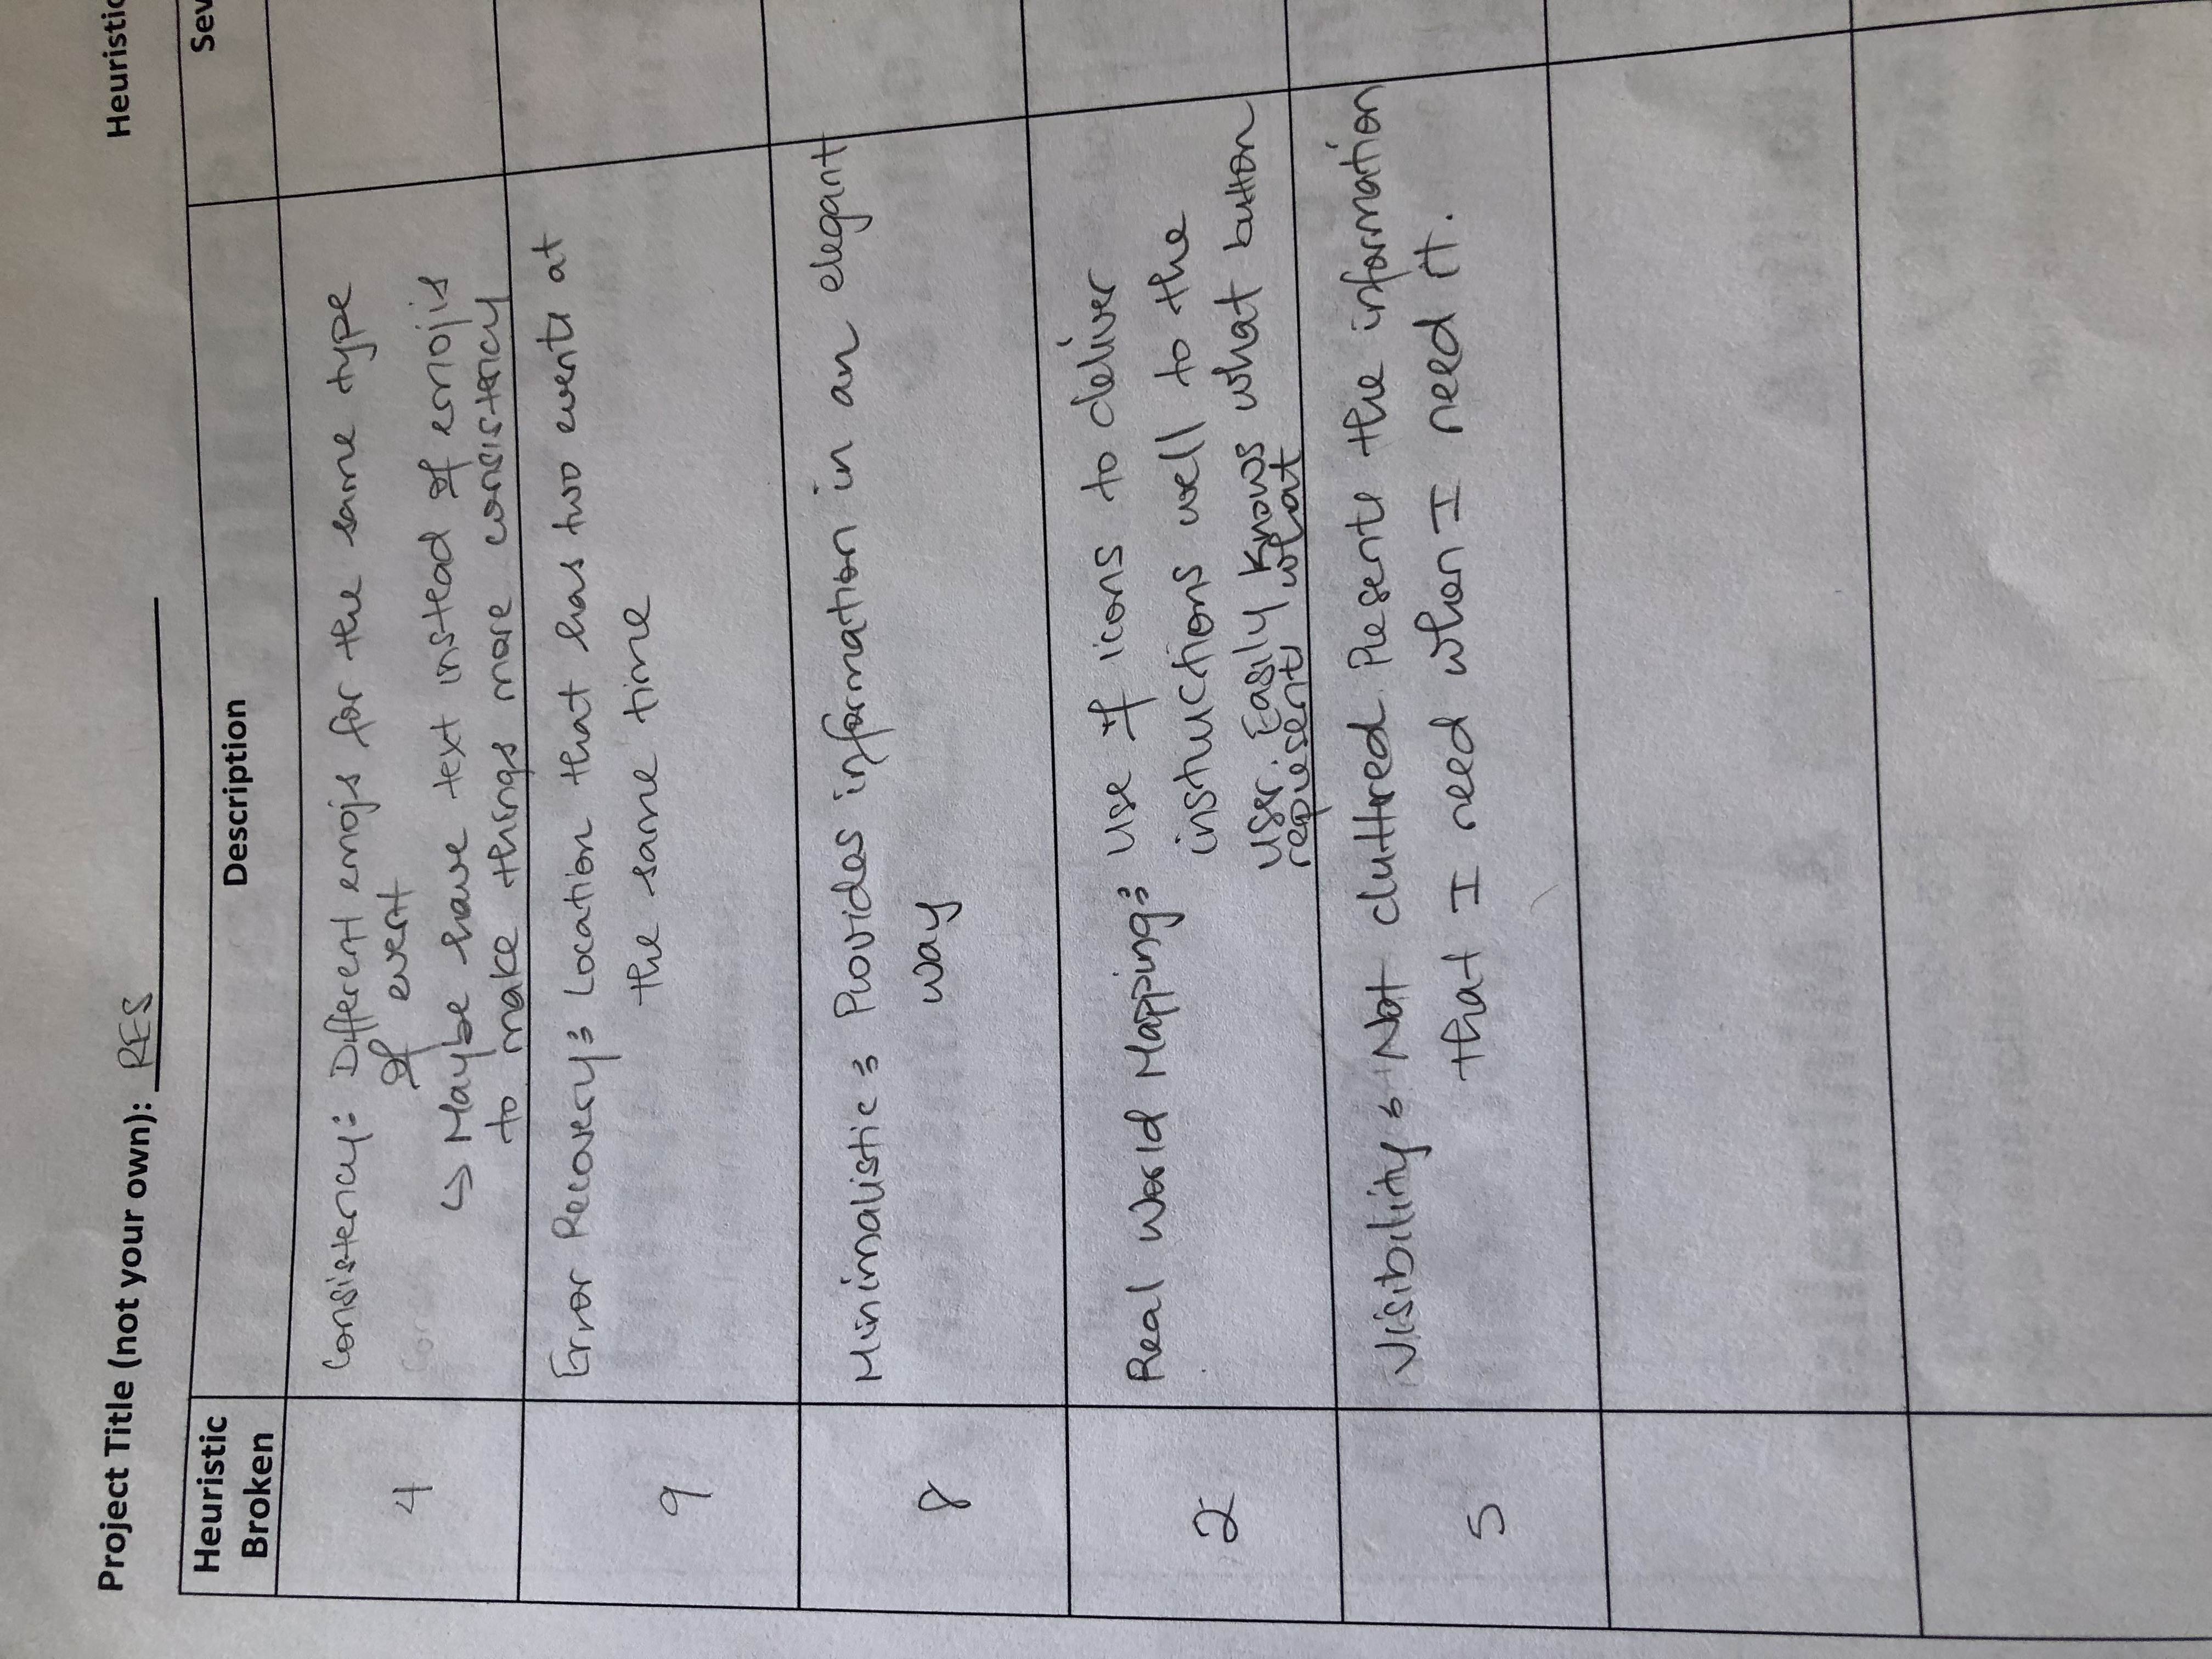 Project Title (not your own): RES
Heuristic
Heuristic Broken
Description
Sev
4
Consistency: Different emojs for the same type
of event
↳ Maybe have text instead of emojis
to make things more consistency
9
Error Recovery: Location that has two events at
the same time
8
Minimalistic: Provides information in an elegant
way
2
Real World Mapping: Use of icons to deliver
instructions well to the
user. Easily knows what button
represents what
5
Visibility: Not cluttred. Presents the information
that I need when I need it.